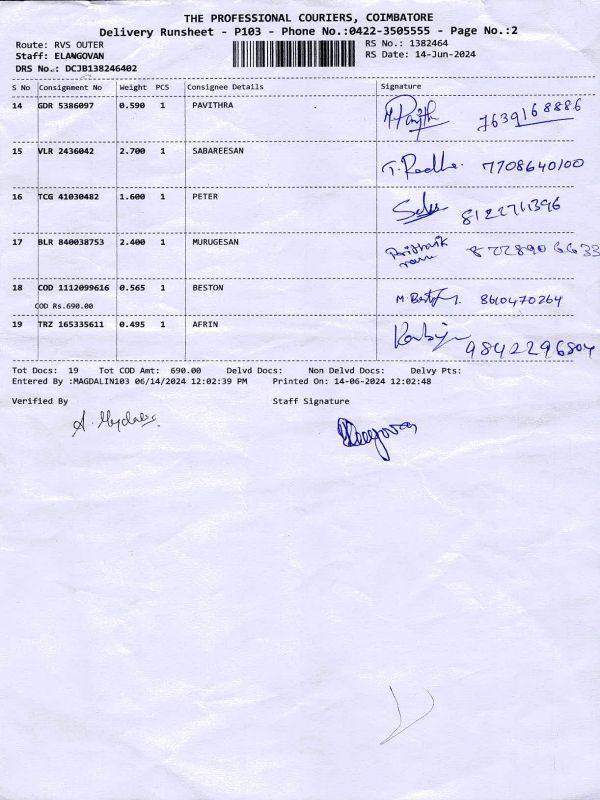 THE PROFESSIONAL COURIERS, COIMBATORE
Delivery Runsheet - P103 - Phone No.:0422-3505555 - Page No.:2
Route: RVS OUTER RS No.: 1382464
Staff: ELANGOVAN RS Date: 14-Jun-2024
DRS No.: DCJB138246402
S No Consignment No Weight PCS Consignee Details Signature
14 GDR 5386097 0.590 1 PAVITHRA 7639168886
15 VLR 2436042 2.700 1 SABAREESAN T. Radha. 7708640100
16 TCG 41030482 1.600 1 PETER 8122711396
17 BLR 840038753 2.400 1 MURUGESAN
18 COD 1112099616 0.565 1 BESTON M. Beston 8610470264
COD Rs.690.00
19 TRZ 165335611 0.495 1 AFRIN 9842296804
Tot Docs: 19 Tot COD Amt: 690.00 Delvd Docs: Non Delvd Docs: Delvy Pts:
Entered By :MAGDALIN103 06/14/2024 12:02:39 PM Printed On: 14-06-2024 12:02:48
Verified By Staff Signature
Elangovan